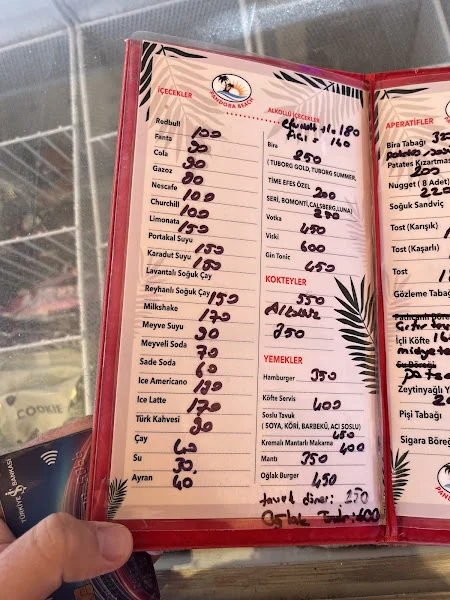 PANDORA BEACH
İÇECEKLER
Redbull
100
Fanta
90
Cola
90
Gazoz
90
Nescafe
100
Churchill
100
Limonata
150
Portakal Suyu
150
Karadut Suyu
150
Lavantalı Soğuk Çay
Reyhanlı Soğuk Çay
150
Milkshake
170
Meyve Suyu
90
Meyveli Soda
70
Sade Soda
60
Ice Americano
Ice Latte
170
Türk Kahvesi
90
Çay
Su
30
Ayran
40
ALKOLLÜ İÇECEKLER
180
160
Bira
250
( TUBORG GOLD, TUBORG SUMMER,
TİME EFES ÖZEL
200
SERİ, BOMONTİ, CALSBERG, LUNA)
250
Votka
450
Viski
600
Gin Tonic
450
KOKTEYLER
550
350
YEMEKLER
Hamburger
350
Köfte Servis
400
Soslu Tavuk
( SOYA, KÖRİ, BARBEKÜ, ACI SOSLU)
450
Kremalı Mantarlı Makarna
400
Mantı
350
Oğlak Burger
450
tavuk döner: 250
600
APERATİFLER
Bira Tabağı
Patates Kızartması
200
Nugget (8 Adet)
220
Soğuk Sandviç
Tost (Karışık)
Tost (Kaşarlı)
Tost
Gözleme Tabağı
İçli Köfte
midye
Su Böreği
Zeytinyağlı
Pişi Tabağı
Sigara Böreği
COOKIE
TÜRKİYE İŞ BANKASI